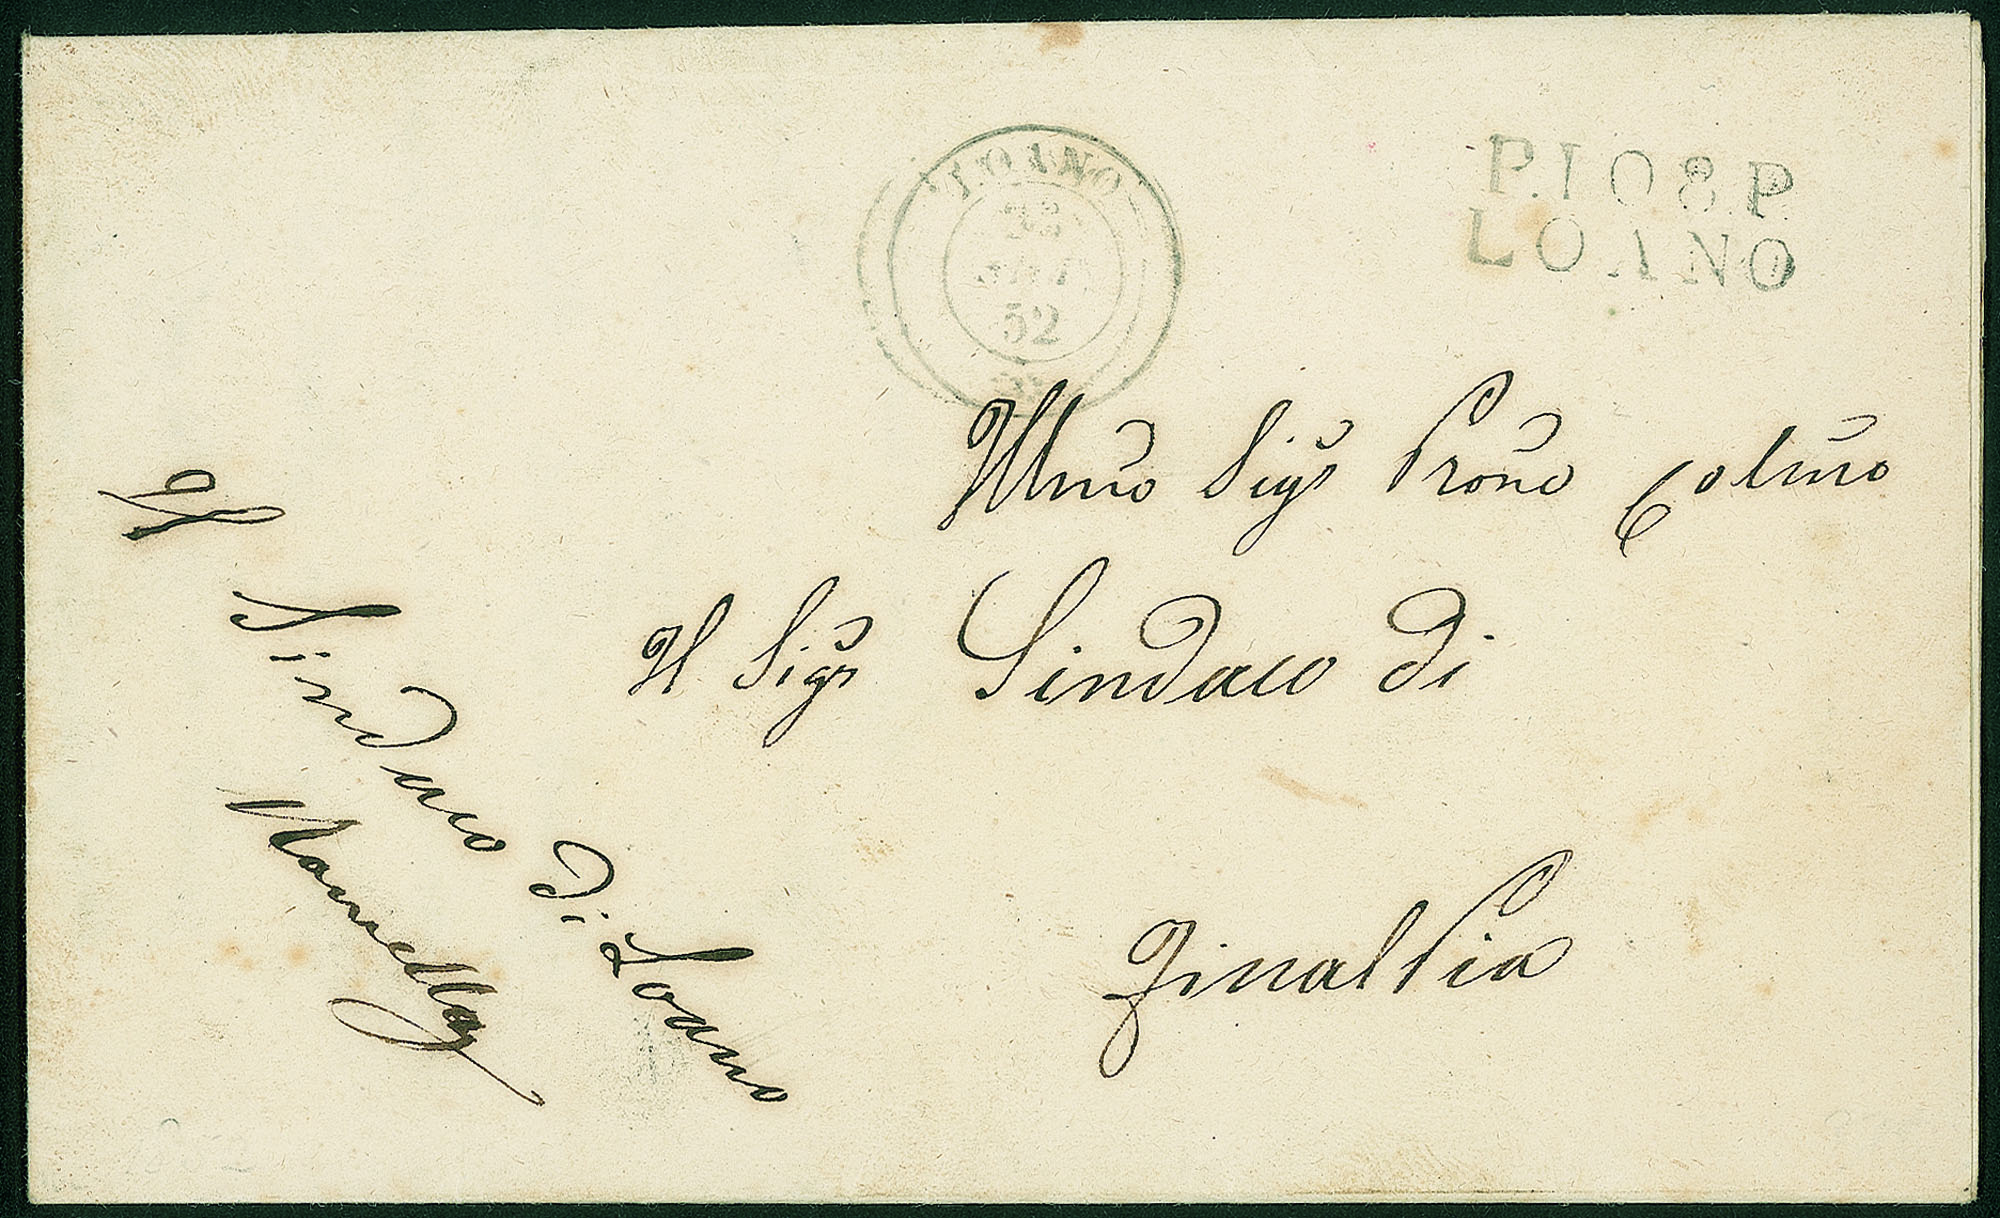 LOANO
52
P.108.P.
LOANO
Illmo Sigr Prone Colmo
Il Sigr Sindaco di
FinalPia
Il
Sindaco di Loano